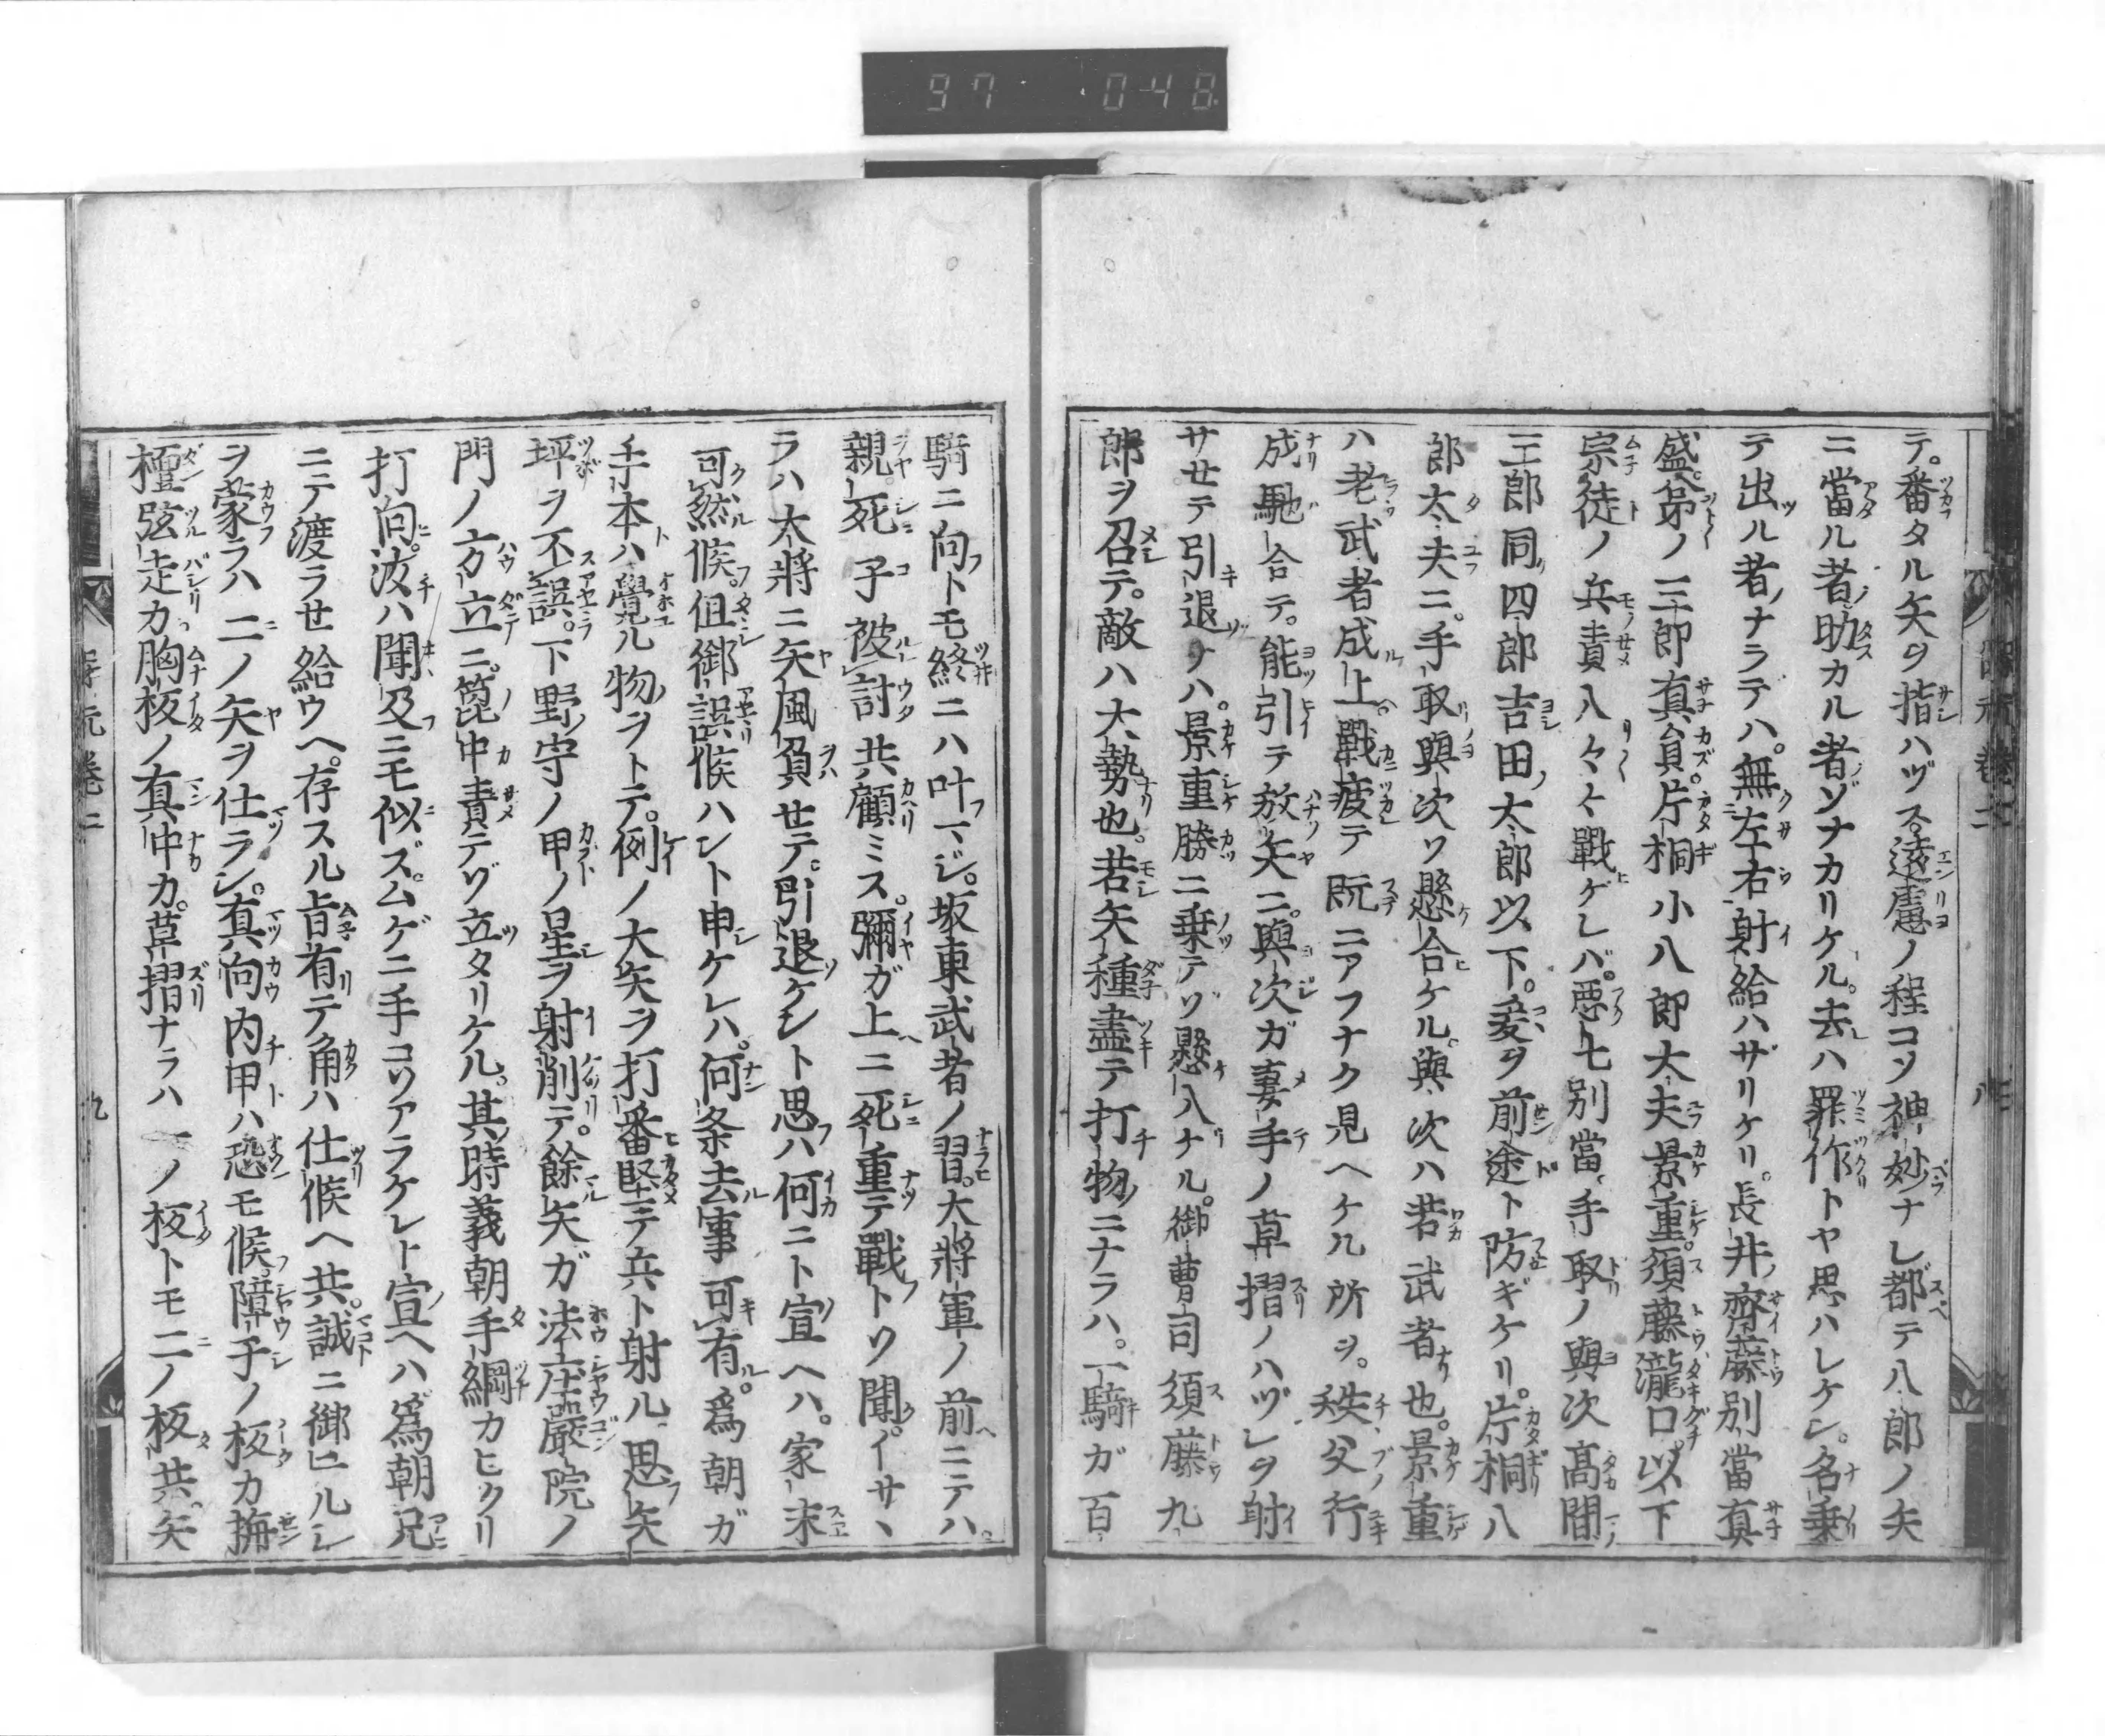 97 048
テ。番タル矢ヲ指ハヅス。遠慮ノ程コソ神妙ナレ都テ八郎ノ矢
ニ當ル者ノ助カル者ゾナカリケル。去ハ罪作トヤ思ハレケン。名乗
テ出ル者ナラデハ。無左右射給ハザリケリ。長井ノ齋藤別當真
盛。弟ノ三郎真員。片桐小八郎大夫景重。須藤瀧口。以下
宗徒ノ兵責入々々戰ケレバ。悪七別當。手取ノ與次。高間
三郎同四郎。吉田ノ太郎以下。爰ヲ前途ト防ギケリ。片桐八
郎太夫ニ。手取與次ソ懸合ケル。與次ハ若武者也。景重
ハ老武者成上。戰疲テ既ニアフナク見ヘケル所ヲ。秩父行
成馳合テ。能引テ放矢ニ。與次ガ妻手ノ草摺ノハヅレヲ射
サセテ引退ケハ。景重勝ニ乗テゾ懸入ナル。御曹司須藤九
郎ヲ召テ。敵ハ大勢也。若矢種盡テ打物ニナラハ。一騎ガ百
騎ニ向トモ終ニハ叶マジ。坂東武者ノ習。大將軍ノ前ニテハ。
親死子被討共顧ミス。彌ガ上ニ死重テ戰トソ聞。イサヽ
ラハ大將ニ矢風負セテ。引退ケント思ハ何ニト宣ヘハ。家末
可然候。但御誤候ハント申ケレハ。何条去事可有。爲朝ガ
手本ハ覺ル物ヲトテ。例ノ大矢ヲ打番堅テ兵ト射ル。思矢
坪ヲ不誤。下野守ノ甲ノ星ヲ射削テ。餘矢ガ法庄嚴院ノ
門ノ方立ニ。箆中責テゾ立タリケル。其時義朝手綱カヒクリ
打向。汝ハ聞及ニモ似ズ。ムゲニ手コソアラケレト宣ヘハ爲朝兄
ニテ渡ラせ給ウヘ。存スル旨有テ角ハ仕候ヘ共。誠ニ御ユルシ
ヲ蒙ラハ二ノ矢ヲ仕ラン。真向内甲ハ恐モ候。障子ノ板カ栴
檀弦走カ胸板ノ真中カ。草摺ナラハ一ノ板トモ二ノ板共。矢